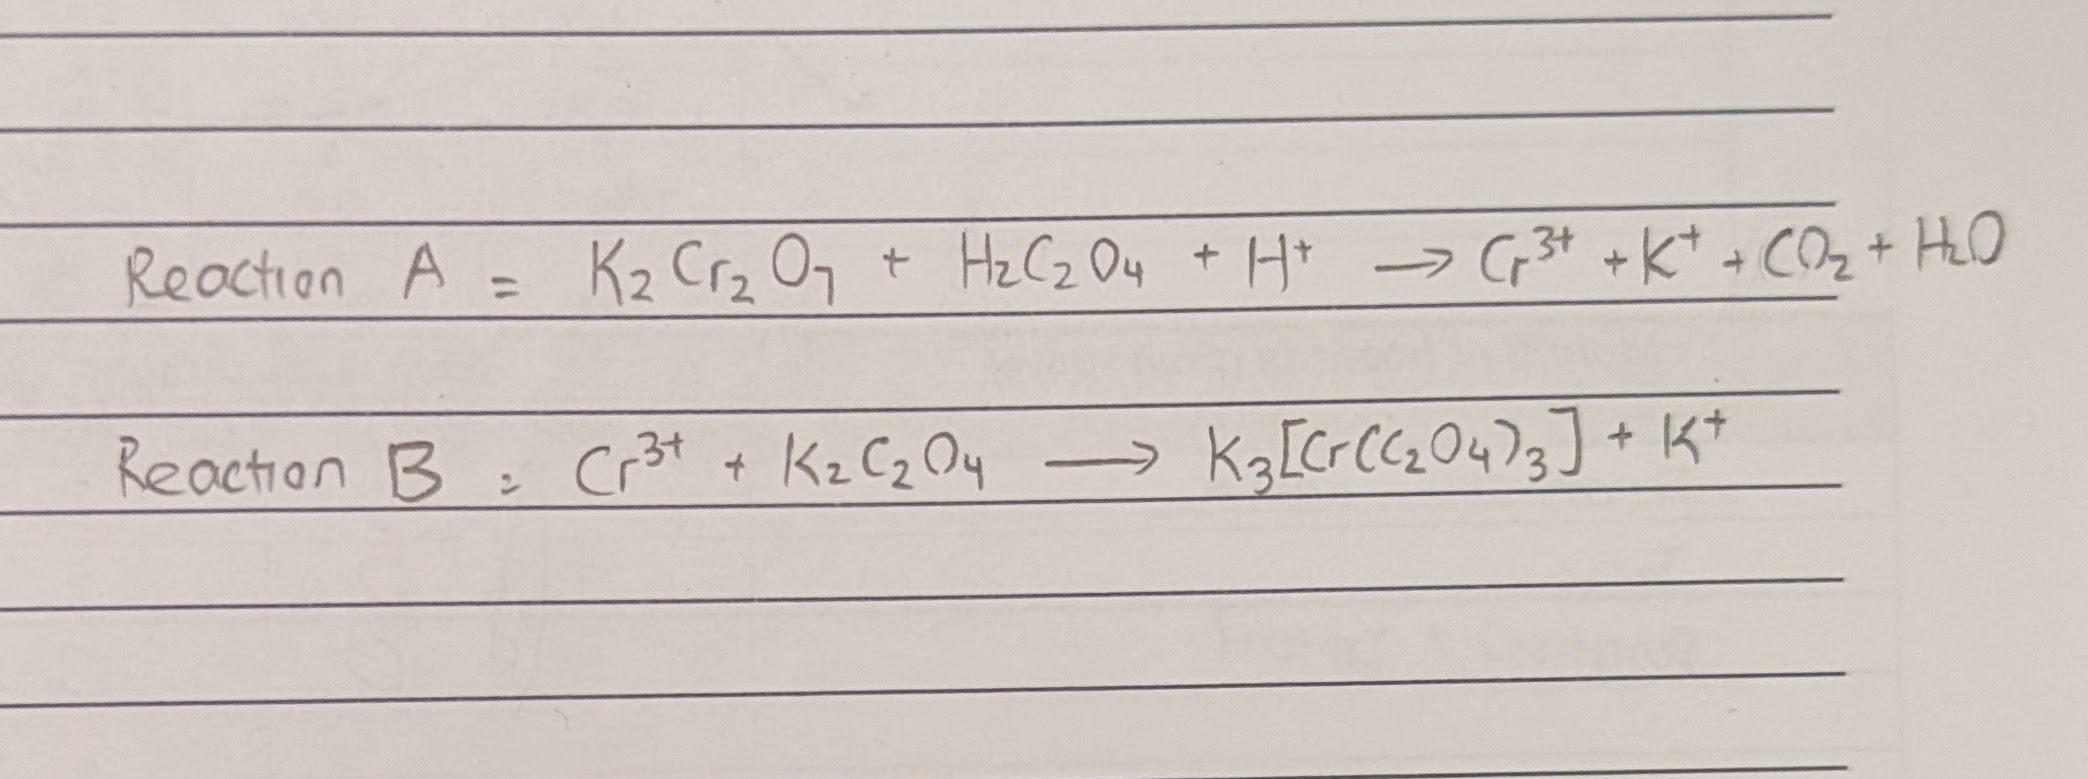 Reaction A = K₂Cr₂O₇ + H₂C₂O₄ + H⁺ → Cr³⁺ + K⁺ + CO₂ + H₂O
Reaction B = Cr³⁺ + K₂C₂O₄ → K₃[Cr(C₂O₄)₃] + K⁺